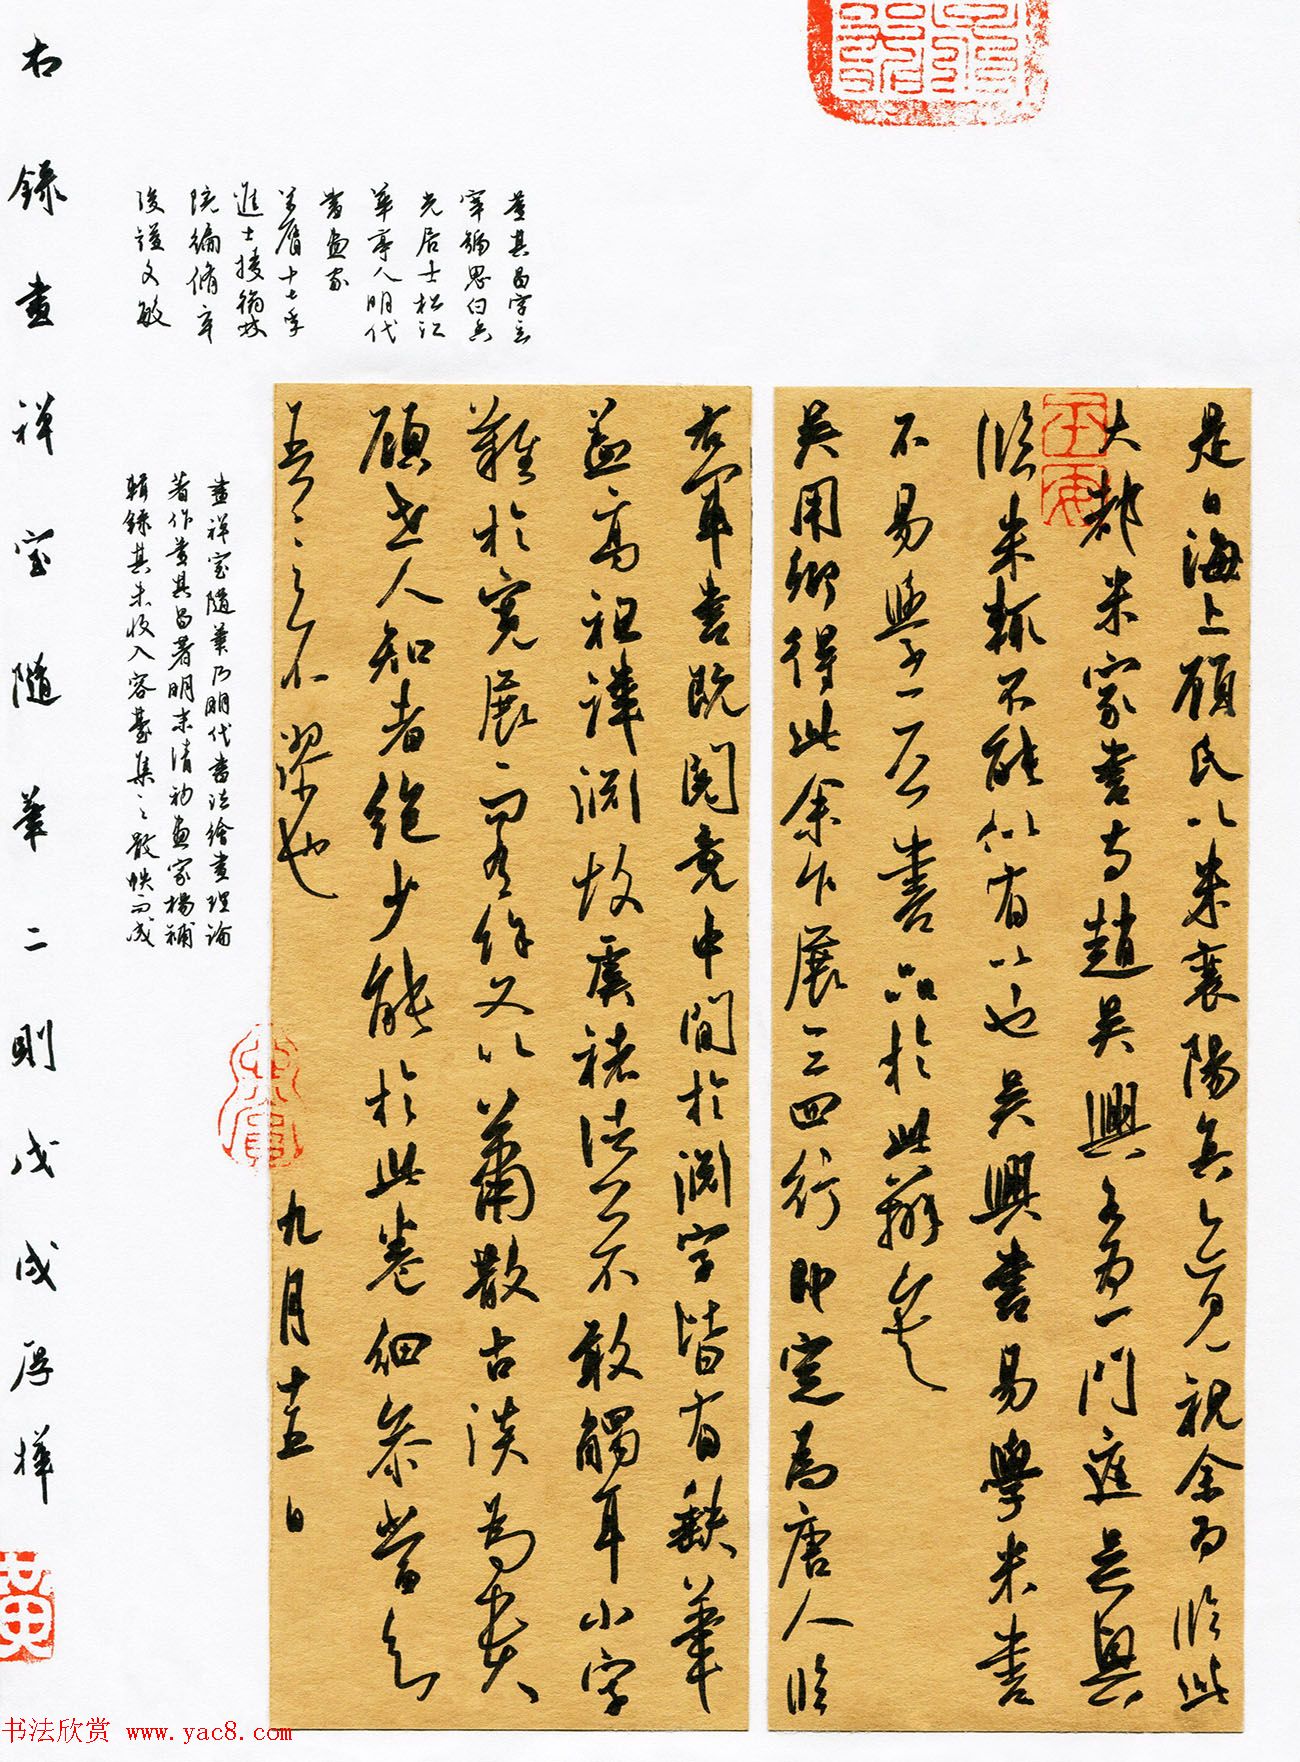 是日海上顾氏以米襄阳真迹见视余为临此
大都米家書与趙吴興各为一門庭吴興
临米輒不能似有以也吴興書易學米書
不易學二公書品於此辨矣
吴用卿得此余乍展三四行即定為唐人临
右軍書既閲竟中間於渊字皆有缺筆
盖高祖諱渊故虞褚諸公不敢觸耳小字
難於寬展而有餘又以蕭散古淡為貴
顧世人知者绝少能於此卷细参當知
吾言之不謬也
九月十五日
董其昌字玄
宰號思白香
光居士松江
華亭人明代
書画家
萬曆十七年
進士授翰林
院编脩卒
後謚文敏
畫禅室隨筆乃明代書法繪畫理論
著作董其昌著明末清初画家楊補
輯錄其未收入容臺集之散帙而成
右録畫禅室隨筆二則戊戌厚樺
黄
书法欣赏 www.yac8.com